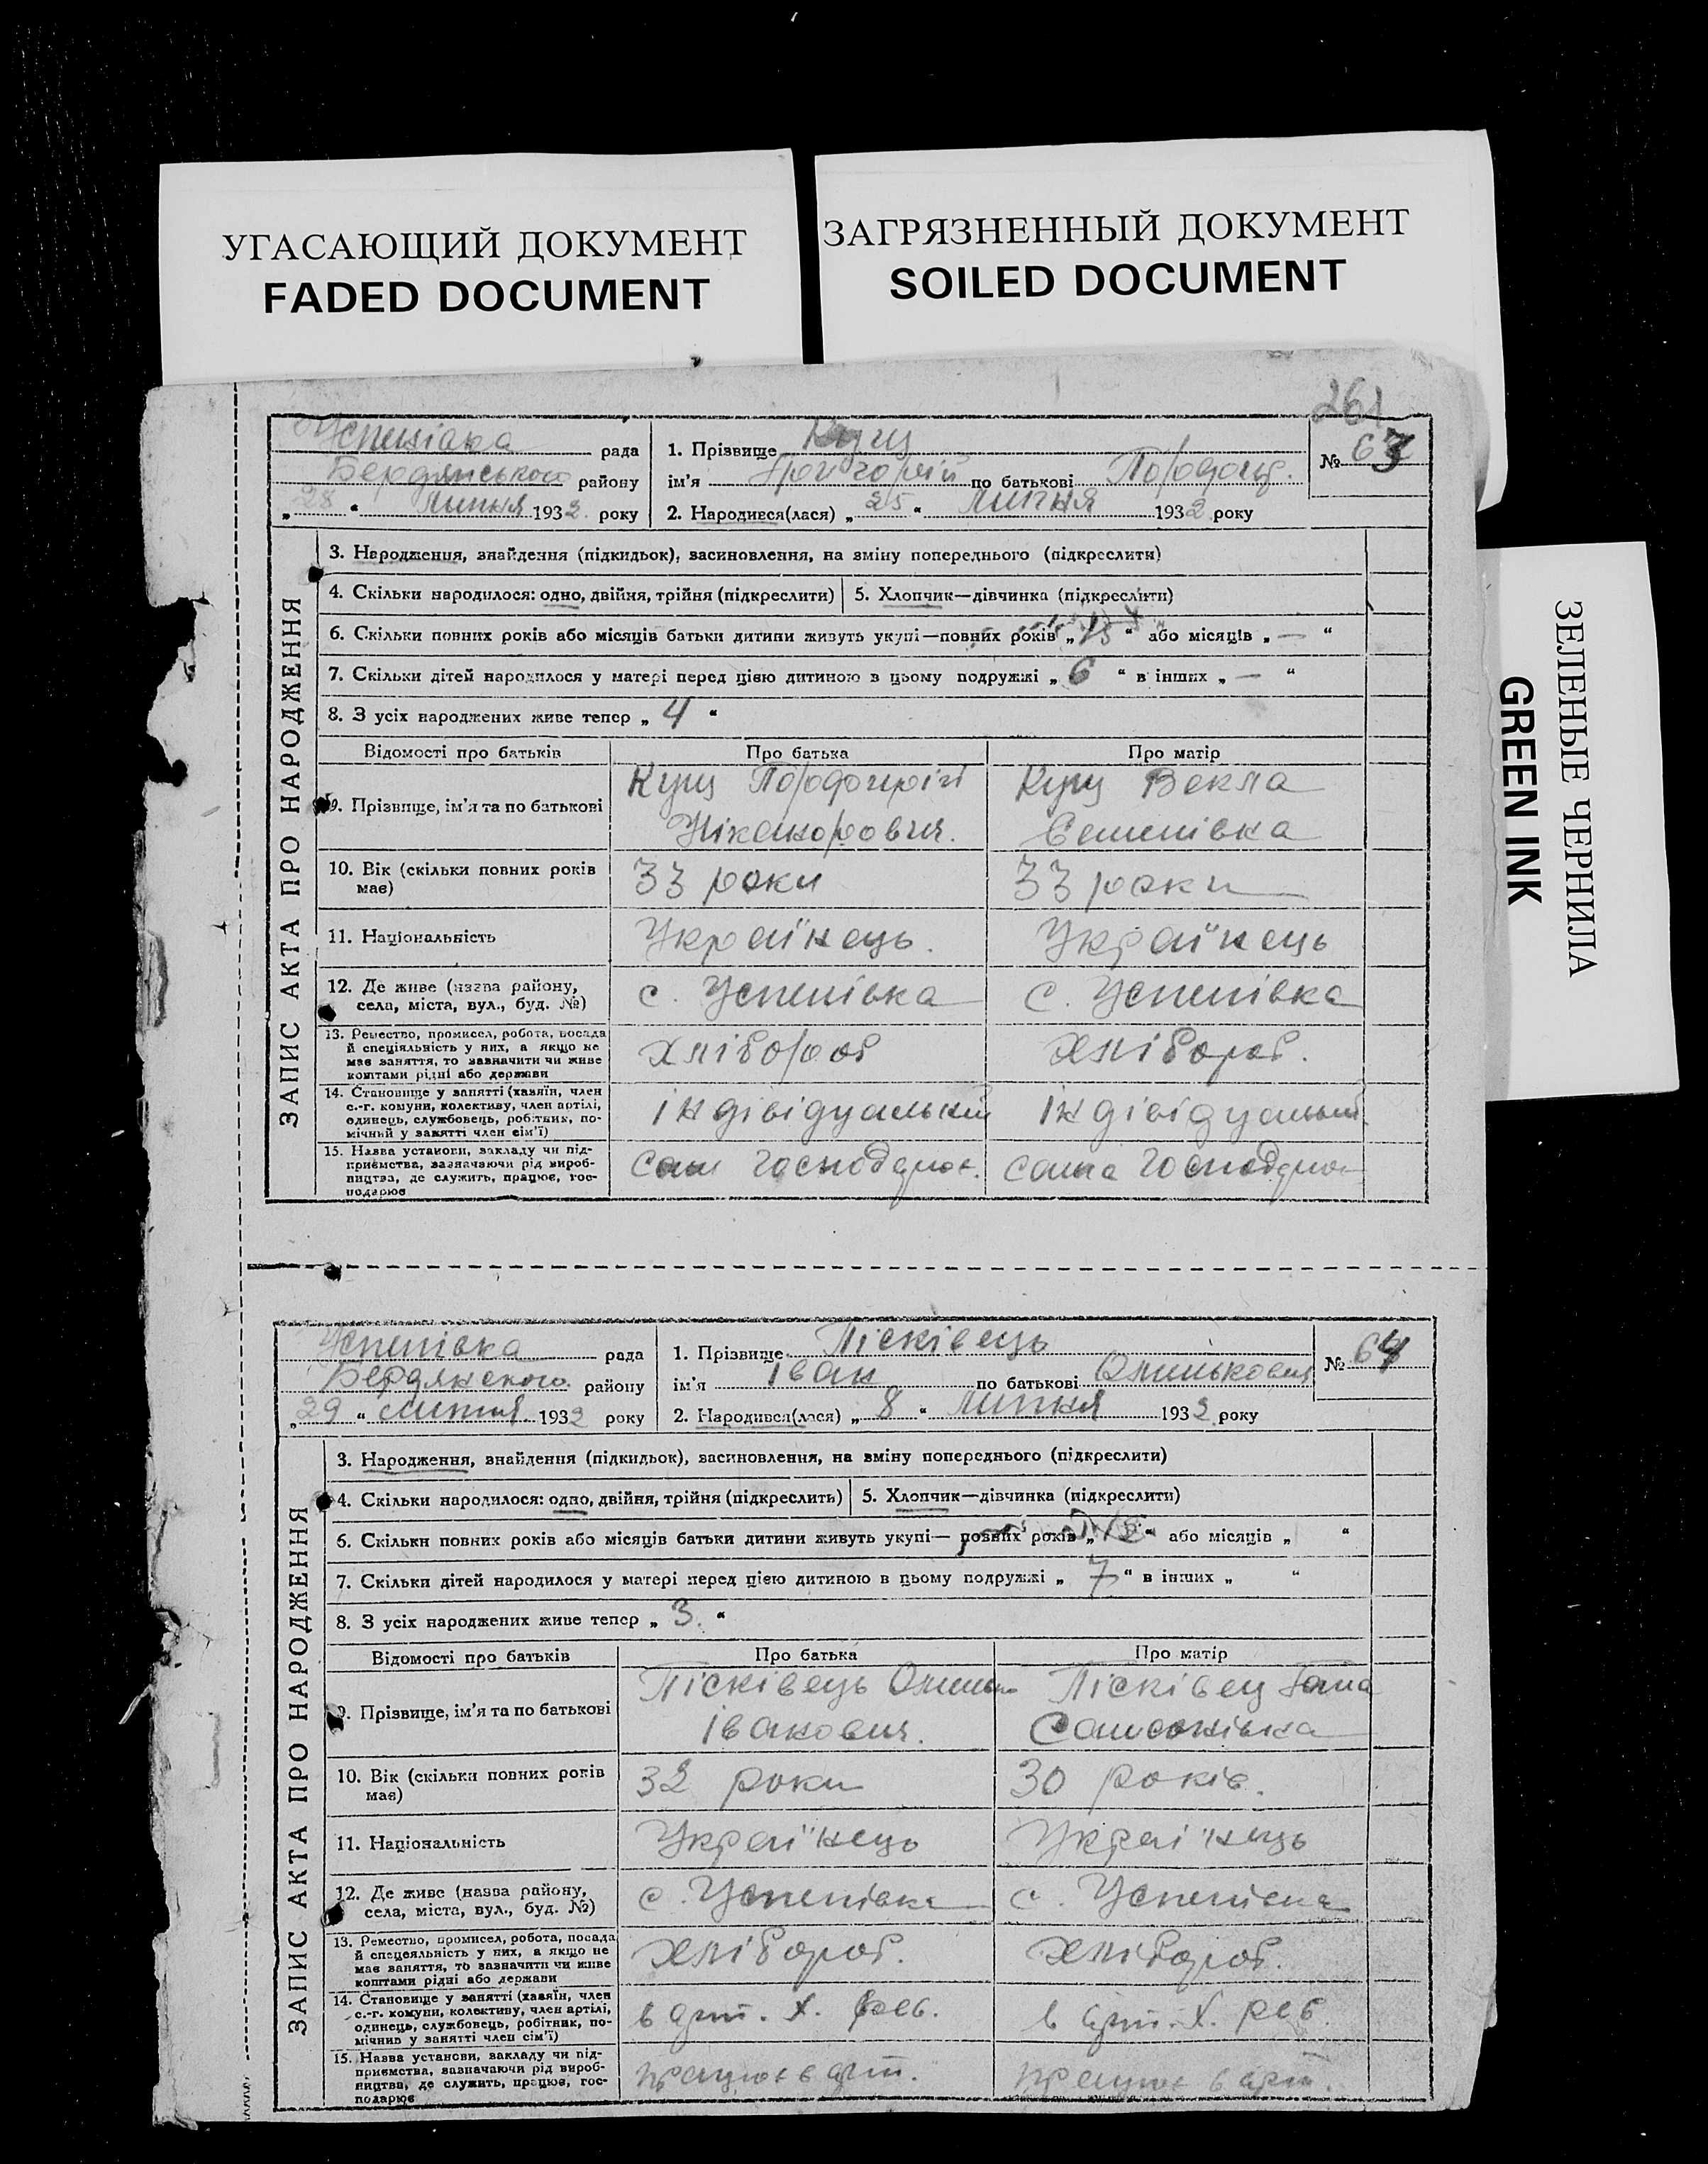 УГАСАЮЩИЙ ДОКУМЕНТ
FADED DOCUMENT
ЗАГРЯЗНЕННЫЙ ДОКУМЕНТ
SOILED DOCUMENT
ЗЕЛЕНЫЕ ЧЕРНИЛА
GREEN INK
261
Успенівка рада
Бердянського району
„28“ липня 1932 року
1. Прізвище Кущ
ім'я Григорій по батькові
2. Народився(лася) „25“ липня 1932 року
№ 63
ЗАПИС АКТА ПРО НАРОДЖЕННЯ
3. Народження, знайдення (підкидьок), засиновлення, на зміну попереднього (підкреслити)
4. Скільки народилося: одно, двійня, трійня (підкреслити)
5. Хлопчик—дівчинка (підкреслити)
6. Скільки повних років або місяців батьки дитини живуть укупі—повних років „15“ або місяців „—“
7. Скільки дітей народилося у матері перед цією дитиною в цьому подружжі „6“ в інших „—“
8. З усіх народжених живе тепер „4“
Відомості про батьків Про батька Про матір
9. Прізвище, ім'я та по батькові
Кущ Порфирій
Ніканорович.
Кущ Векла
Семенівна
10. Вік (скільки повних років
має)
33 роки
33 роки
11. Національність
Українець.
Українець
12. Де живе (назва району,
села, міста, вул., буд. №)
с. Успенівка
с. Успенівка
13. Ремество, промисел, робота, посада
й спеціяльність у них, а якщо не
має заняття, то зазначити чи живе
коштами рідні або держави
хлібороб
хлібороб.
14. Становище у занятті (хазяїн, член
с.-г. комуни, колективу, член артілі,
одинець, службовець, робітник, по-
мічний у занятті член сім'ї)
індівідуальний
індівідуальний.
15. Назва установи, закладу чи під-
приємства, зазначаючи рід вироб-
ництва, де служить, працює, гос-
подарює
сам господарює.
сама господарює
Успенівка рада
Бердянського району
„29“ липня 1932 року
1. Прізвище Пісківець
ім'я Іван по батькові
2. Народився(лася) „8“ липня 1932 року
№ 64
ЗАПИС АКТА ПРО НАРОДЖЕННЯ
3. Народження, знайдення (підкидьок), засиновлення, на зміну попереднього (підкреслити)
4. Скільки народилося: одно, двійня, трійня (підкреслить)
5. Хлопчик—дівчинка (підкреслити)
6. Скільки повних років або місяців батьки дитини живуть укупі— повних років „12“ або місяців „ “
7. Скільки дітей народилося у матері перед цією дитиною в цьому подружжі „7“ в інших „ “
8. З усіх народжених живе тепер „3.“
Відомості про батьків Про батька Про матір
9. Прізвище, ім'я та по батькові
Пісківець
Іванович.
Пісківец
Самсонівна
10. Вік (скільки повних років
має)
32 роки
30 років.
11. Національність
Українець
Українець
12. Де живе (назва району,
села, міста, вул., буд. №)
с. Успенівка
с. Успенівка
13. Ремество, промисел, робота, посада
й спецеяльність у них, а якщо не
має заняття, то зазначити чи живе
коштами рідні або держави
хлібороб.
хлібороб.
14. Становище у занятті (хазяїн, член
с.-г. комуни, колективу, член артілі,
одинець, службовець, робітник, по-
мічник у занятті член сім'ї)
в арт. Х.
в арт. Х.
15. Назва установи, закладу чи під-
приємства, зазначаючи рід вироб-
ництва, де служить, працює, гос-
подарює
працює в арт.
працює в арт.